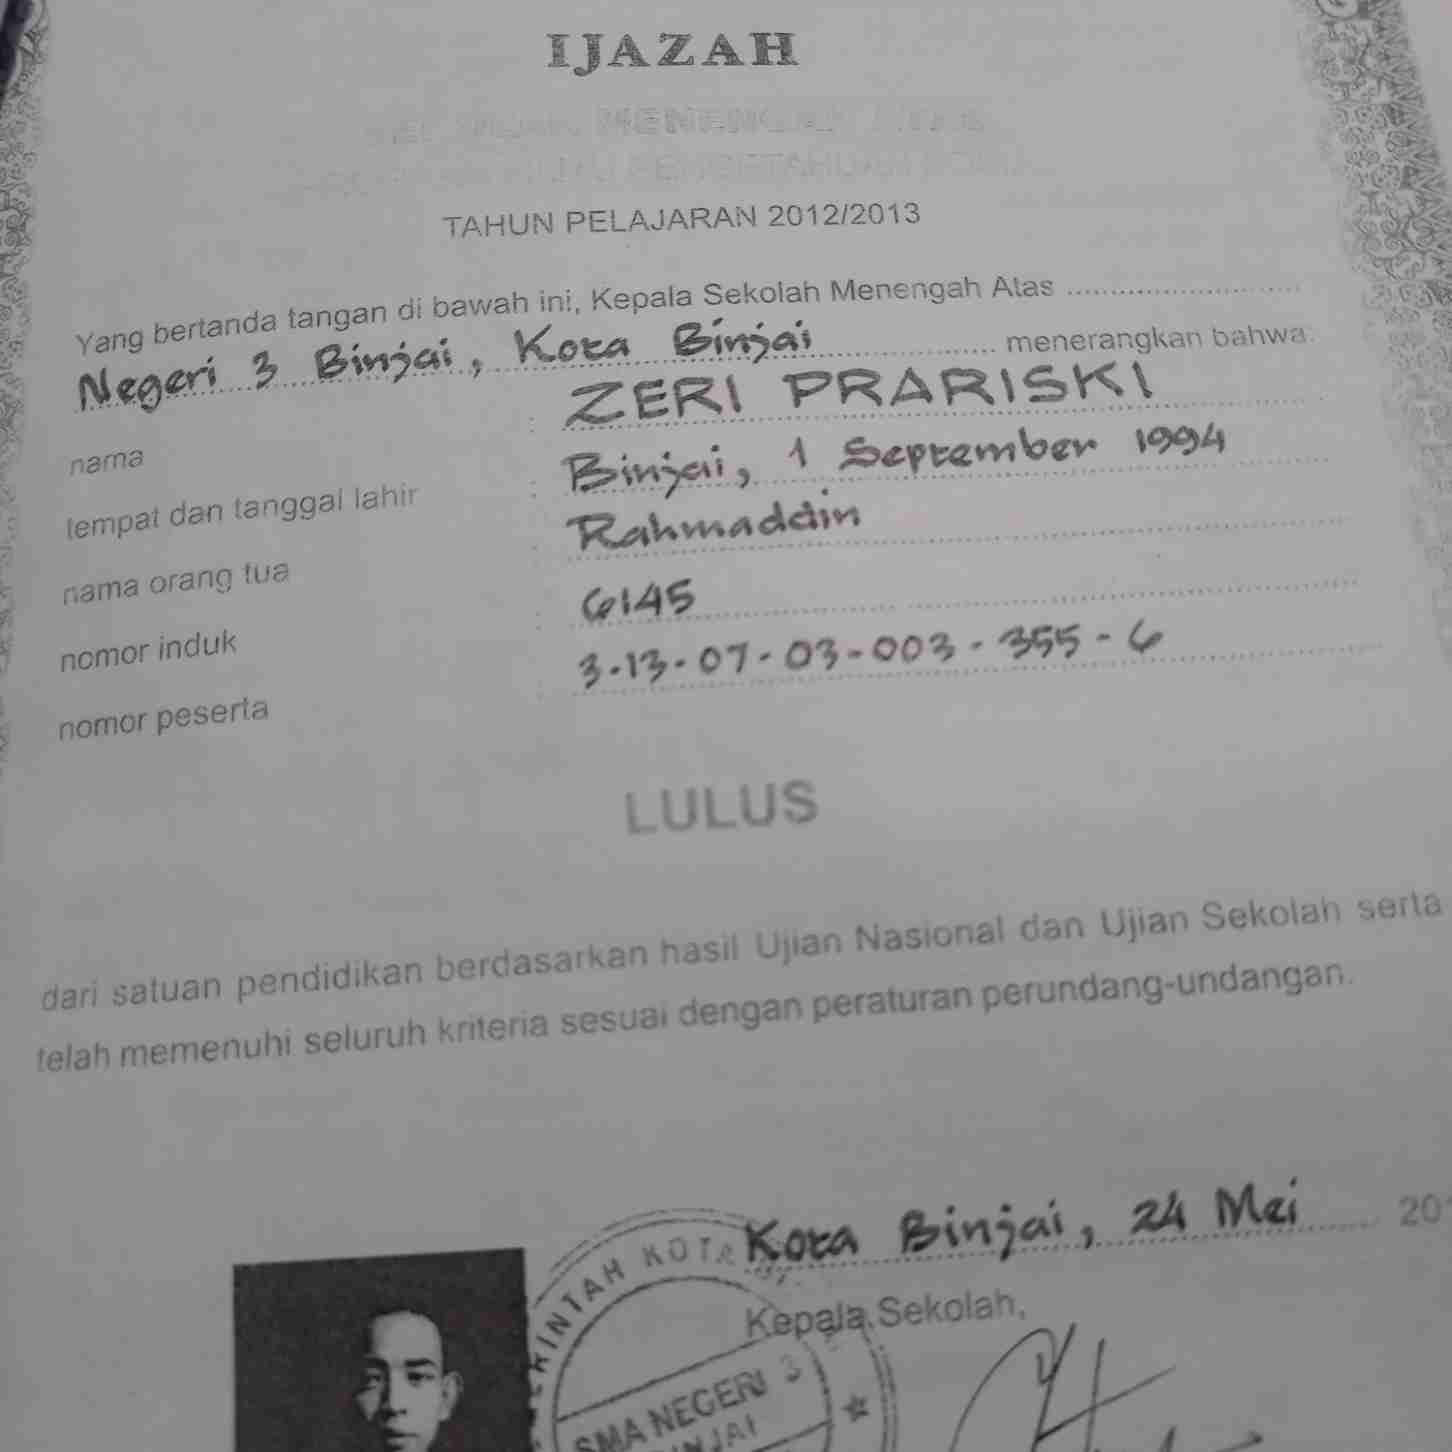 IJAZAH
MENENGAH
PENGETAHUAN
TAHUN PELAJARAN 2012/2013
Yang bertanda tangan di bawah ini, Kepala Sekolah Menengah Atas
Negeri 3 Binjai, Kota Binjai menerangkan bahwa:
nama : ZERI PRARISKI
tempat dan tanggal lahir : Binjai, 1 September 1994
nama orang tua : Rahmaddin
nomor induk : 6145
nomor peserta : 3-13-07-03-003-355-6
LULUS
dari satuan pendidikan berdasarkan hasil Ujian Nasional dan Ujian Sekolah serta
telah memenuhi seluruh kriteria sesuai dengan peraturan perundang-undangan.
Kota Binjai, 24 Mei 20
Kepala Sekolah,
KOTA
SMA NEGERI 3